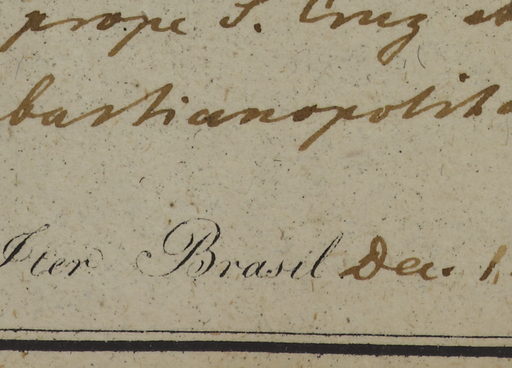 prope S. Cruz et
bastianopolit
Iter Brasil Dec. 1